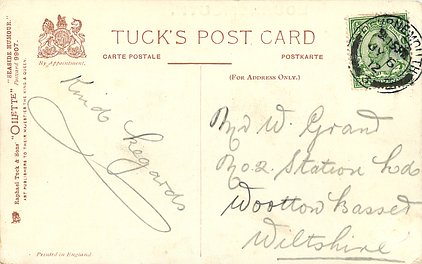 TUCK'S POST CARD
CARTE POSTALE
POSTKARTE
(FOR ADDRESS ONLY.)
By Appointment.
Raphael Tuck & Sons' "OILETTE" "SEASIDE HUMOUR."
Postcard 9997.
ART PUBLISHERS TO THEIR MAJESTIES THE KING & QUEEN.
Printed in England
Kind
Regards
BOURNEMOUTH
W. Grand
No. 2. Station
Wootton Basset
Wiltshire